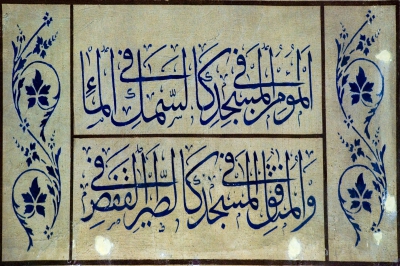 المؤمن في المسجد كالسمك في الماء
والمنافق في المسجد كالطير في القفص